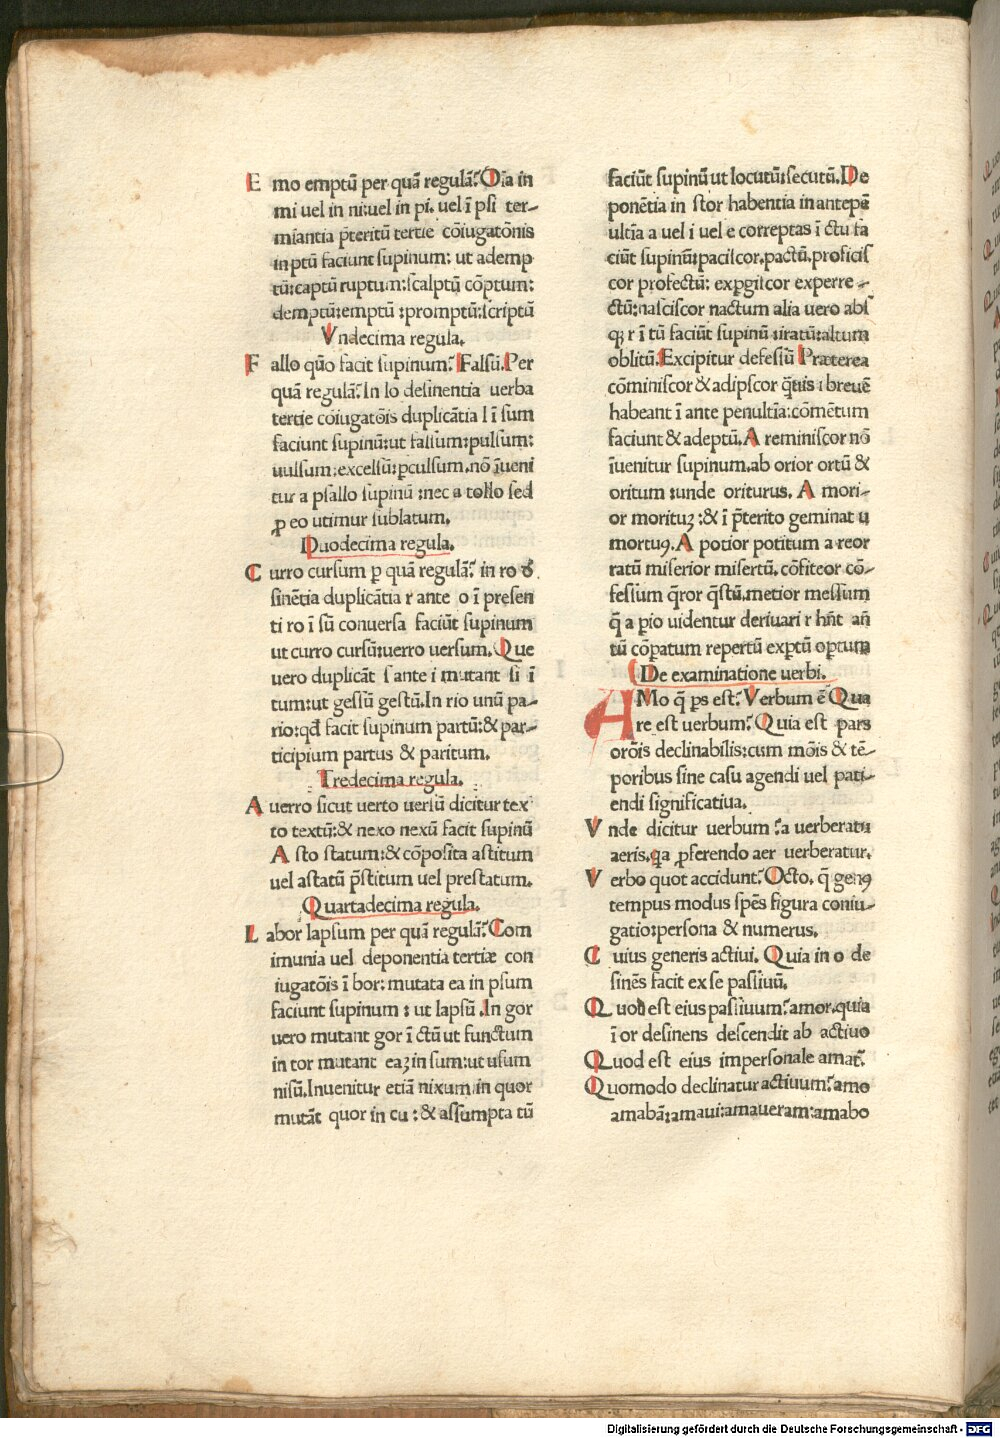 E mo emptū per quā regulā? Oīa in
mi uel in ni:uel in pi. uel ī psi ter-
mīantia p̄teritū tertie cōiugatōnis
in ptū faciunt supinum: ut ademp
tū:captū ruptum:scalptū cōptum:
demptū:emptū :promptū:scriptū
Vndecima regula.
F allo quō facit supinum? Falsū. Per
quā regulā? In lo desinentia uerba
tertie cōiugatōis duplicātia l ī sum
faciunt supinū:ut falsum:pulsum:
uulsum:excelsū:ꝑculsum.nō īueni
tur a psallo supinū :nec a tollo sed
ꝓ eo utimur sublatum.
Duodecima regula.
C urro cursum ꝑ quā regulā? in ro de
sinētia duplicātia r ante o ī presen
ti ro ī sū conuersa faciūt supinum
ut curro cursū:uerro uersum. Que
uero duplicāt s ante i mutant si ī
tum:ut gessū gestū. In rio unū pa-
rio:qđ facit supinum partū:& par-
ticipium partus & paritum.
Tredecima regula.
A uerro sicut uerto uersū dicitur tex
to textū:& nexo nexū facit supinū
A sto statum:& cōposita astitum
uel astatū p̄stitum uel prestatum.
Quartadecima regula.
L abor lapsum per quā regulā? Com
imunia uel deponentia tertiæ con
iugatōis ī bor: mutata ea in psum
faciunt supinum : ut lapsū .In gor
uero mutant gor ī ctū ut functum
in tor mutant eaꝫ in sum:ut usum
nisū. Inuenitur etiā nixum in quor
mutāt quor in cu : & assumpta tū
faciūt supinū ut locutū:secutū. De
ponētia in scor habentia in antepē
ultīa a uel i uel e correptas ī ctu fa
ciūt supinū:paciscor.pactū.proficis
cor profectū: exꝑgiscor experre-
ctū:nasciscor nactum alia uero absꝗ
ꝗꝫ r ī tū faciūt supinū :iratū:altum
oblitū. Excipitur defessū Præterea
cōminiscor & adipscor q̄uis i breuē
habeant ī ante penultīa:cōmētum
faciunt & adeptū. A reminiscor nō
īuenitur supinum.ab orior ortū &
oritum :unde oriturus. A mori-
or morituꝫ :& ī p̄terito geminat u
mortuꝰ. A potior potitum a reor
ratū miserior misertū. cōfiteor cō-
fessum q̄ror q̄stū.metior messum
q̄ a pario uidentur deriuari r hn̄t añ
tū cōꝑatum repertū exꝑtū oꝑtum
De examinatione uerbi.
AMo q̄ ꝑs est? Verbum ē Qua
re est uerbum? Quia est pars
orōis declinabilis:cum mōis & tē-
poribus sine casu agendi uel pati-
endi significatiua.
V nde dicitur uerbum ?a uerberatu
aeris.qa ꝓferendo aer uerberatur.
V erbo quot accidunt? Octo. q̄ genꝰ
tempus modus spēs figura coniu-
gatio:persona & numerus.
C uius generis actiui. Quia in o de
sinēs facit ex se passiuū.
Q uod est eius passiuum? amor.quia
ī or desinens descendit ab actiuo
Q uod est eius impersonale amat̄?
Q uomodo declinatur actiuum? amo
amabā:amaui:amaueram:amabo
Digitalisierung gefördert durch die Deutsche Forschungsgemeinschaft - DFG